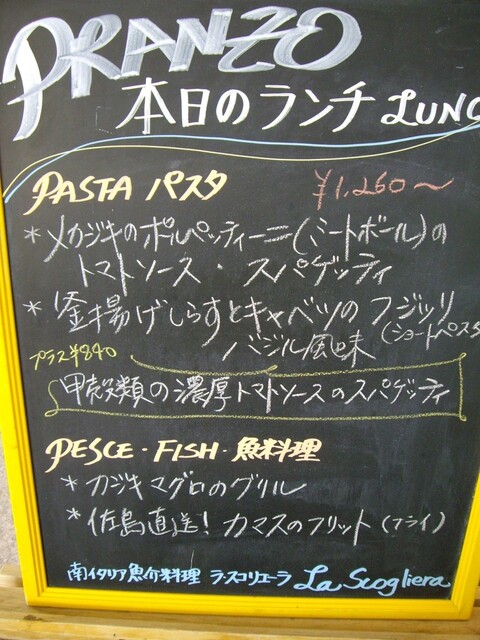 PRANZO
本日のランチ LUNC
PASTA パスタ ¥1,260～
* メカジキのポルペッティーニ(ミートボール)の
トマトソース・スパゲッティ
* 釜揚げしらすとキャベツのフジッリ
バジル風味 (ショートパスタ
プラス¥840
甲殻類の濃厚トマトソースのスパゲッティ
PESCE・FISH・魚料理
* カジキマグロのグリル
* 佐島直送! カマスのフリット (フライ)
南イタリア魚介料理 ラ・スコリエーラ La Scogliera